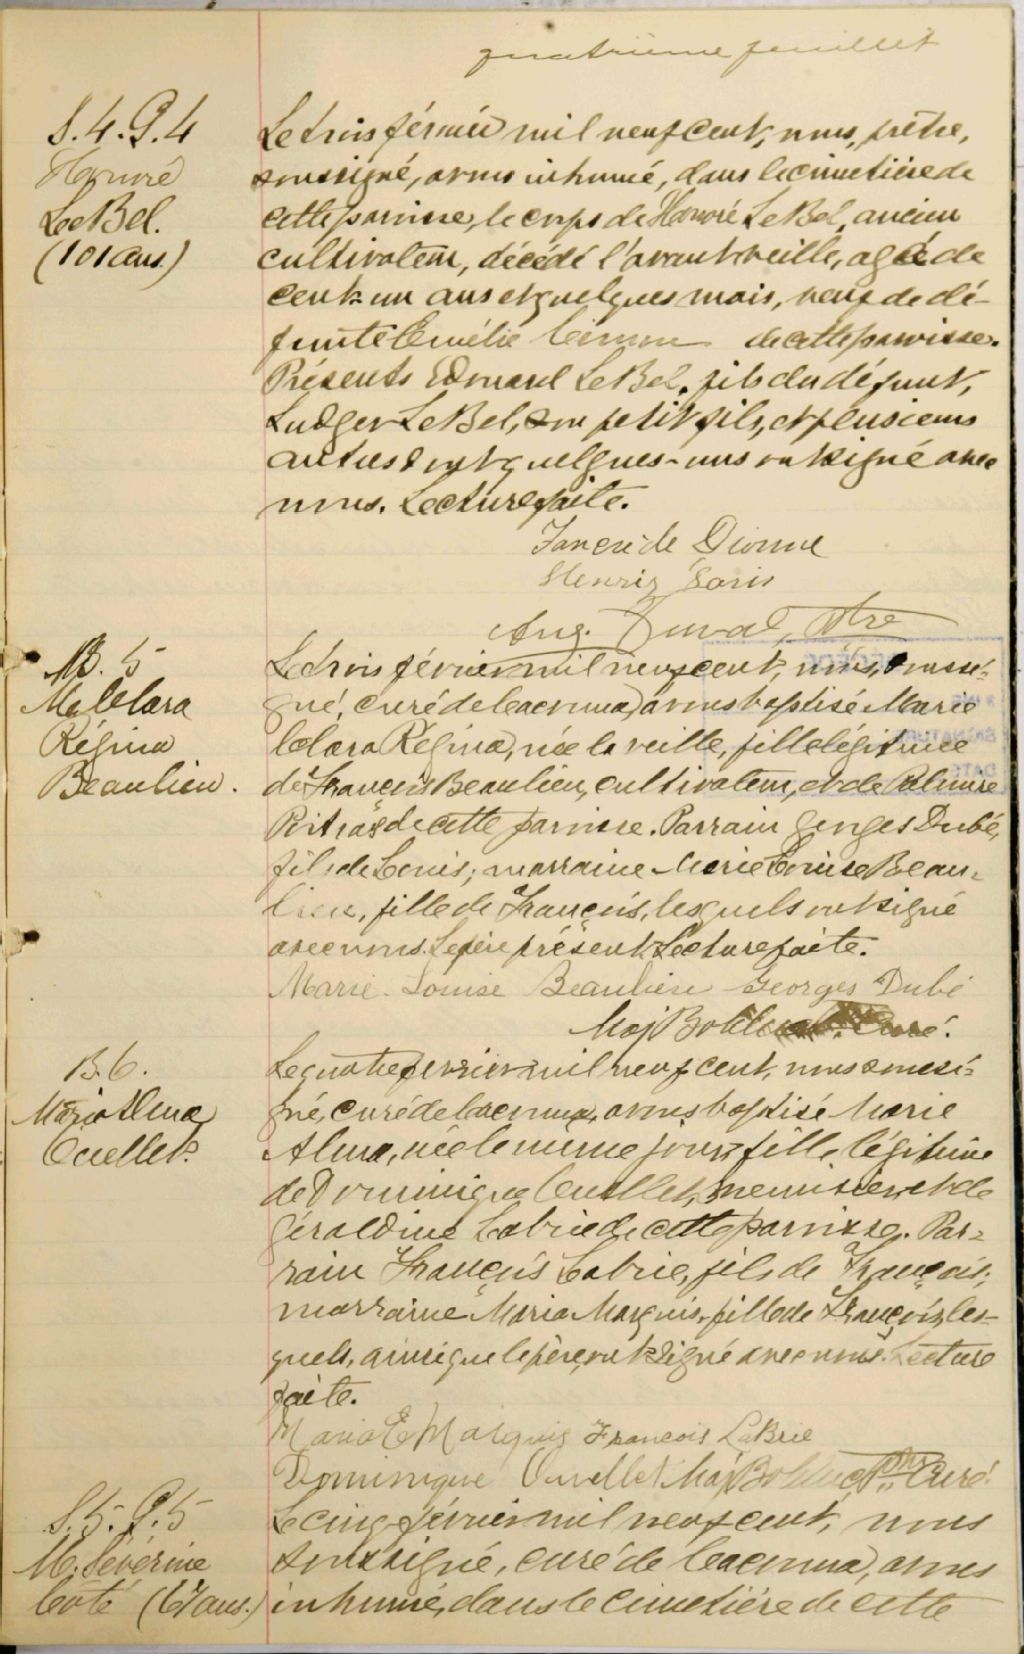 quatrième feuillet
S.4.G.4
Honoré
LeBel.
(101 ans.)
Le trois février mil neuf cent, nous, prêtre,
soussigné, avons inhumé, dans le cimetière de
cette paroisse, le corps de Honoré LeBel, ancien
cultivateur, décédé l'avant-veille, agé de
cent-un ans et quelques mais, veuf de dé-
funte Emélie de cette paroisse.
Présents Edouard LeBel, fils du défunt,
Ludger LeBel, son petit fils, et plusieurs
autres dont quelques-uns ont signé avec
nous. Lecture faite.
Tancrède Dionne
Henriz Paris
Aug. Duval, Ptre
B. 5
M. Clara
Régina
Beaulieu.
Le trois février mil neuf cent, nous, soussi-
gné, curé de Cacouna, avons baptisé Marie
Clara Régina, née la veille, fille légitime
de François Beaulieu, cultivateur, et de Palmire
Pitras de cette paroisse. Parrain Georges Dubé,
fils de Louis; marraine Marie Louise Beau-
lieu, fille de François, lesquels ont signé
avec nous. Le père présent. Lecture faite.
Marie-Louise Beaulieu Georges Dubé
Maj Bolduc Curé.
B.6.
Maria Alma
Ouellet.
Le quatre février mil neuf cent, nous soussi-
gné, curé de Cacouna, avons baptisé Marie
Alma, née le même jour, fille légitime
de Dominique Ouellet, menuisier, et de
Géraldine Labrie de cette paroisse. Par-
rain François Labrie, fils de François;
marraine Maria Marquis, fille de François, les-
quels, ainsi que le père, ont signé avec nous. Lecture
faite.
Maria E Marquis Francois LaBrie
Dominique Ouellet Maj Bolduc Ptre Curé.
S.5. G.5
M. Sévérine
Coté (67 ans.)
Le cinq février mil neuf cent, nous
soussigné, curé de Cacouna, avons
inhumé, dans le cimetière de cette